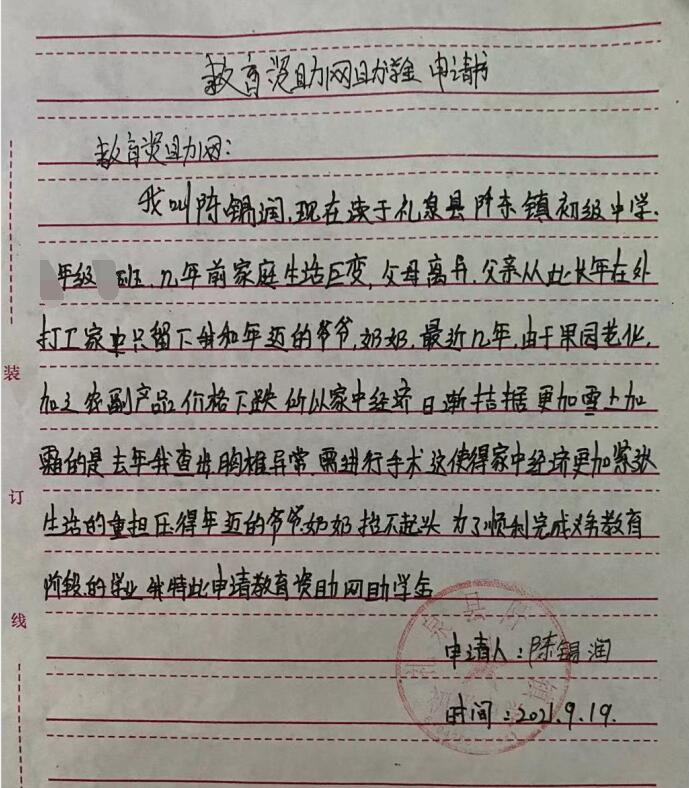 教育资助网助学金申请书
教育资助网：
我叫陈锡润,现在读于礼泉县阡东镇初级中学.
年级 班.几年前家庭生活巨变,父母离异.父亲从此长年在外
打工家中只留下我和年迈的爷爷,奶奶.最近几年,由于果园老化,
加之农副产品价格下跌所以家中经济日渐拮据更加雪上加
霜的是去年我查出胸椎异常.需进行手术这使得家中经济更加紧张
生活的重担压得年迈的爷爷奶奶抬不起头 为了顺利完成义务教育
阶段的学业我特此申请教育资助网助学金
申请人：陈锡润
时间：2021.9.19.
装
订
线